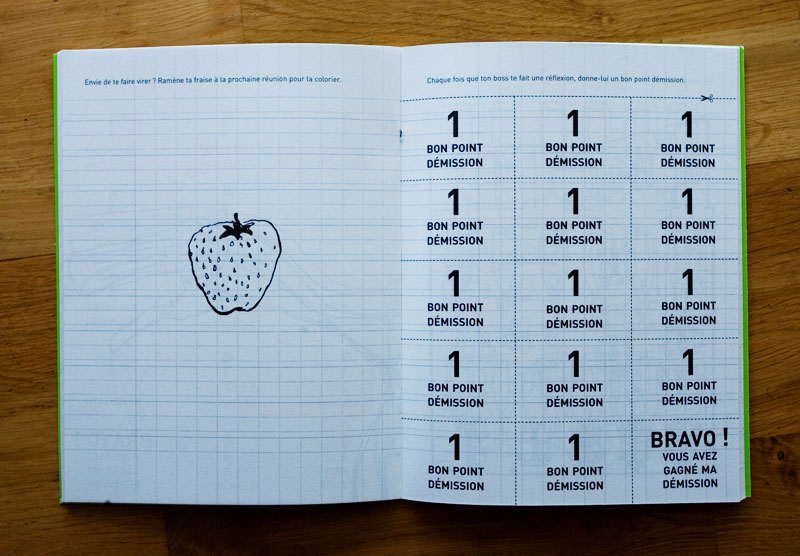 Envie de te faire virer ? Ramène ta fraise à la prochaine réunion pour la colorier.
Chaque fois que ton boss te fait une réflexion, donne-lui un bon point démission.
1
BON POINT
DÉMISSION
1
BON POINT
DÉMISSION
1
BON POINT
DÉMISSION
1
BON POINT
DÉMISSION
1
BON POINT
DÉMISSION
1
BON POINT
DÉMISSION
1
BON POINT
DÉMISSION
1
BON POINT
DÉMISSION
1
BON POINT
DÉMISSION
1
BON POINT
DÉMISSION
1
BON POINT
DÉMISSION
1
BON POINT
DÉMISSION
1
BON POINT
DÉMISSION
1
BON POINT
DÉMISSION
BRAVO !
VOUS AVEZ
GAGNÉ MA
DÉMISSION